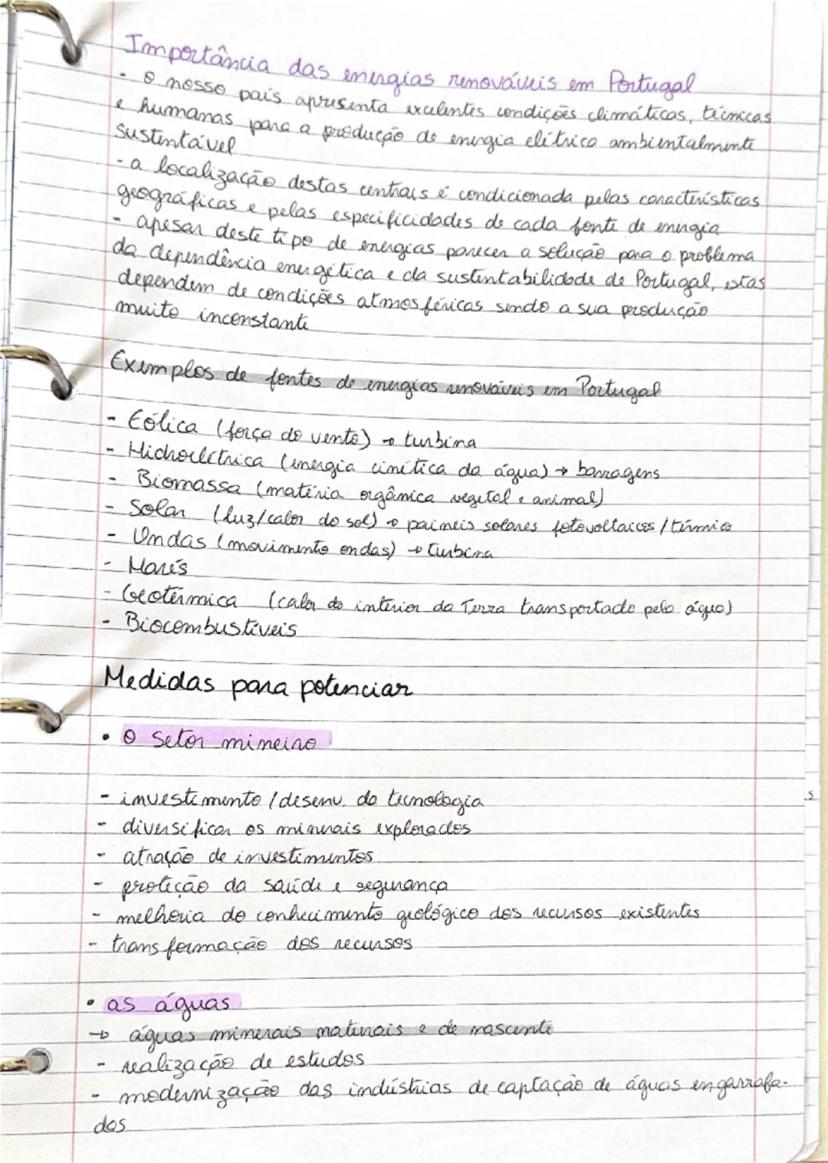 Importância das energias renováveis em Portugal
- o nosso país apresenta excelentes condições climáticas, técnicas
e humanas para a produção de energia elétrica ambientalmente
sustentável
- a localização destas centrais é condicionada pelas características
geográficas e pelas especificidades de cada fonte de energia
- apesar deste tipo de energias parecer a solução para o problema
da dependência energética e da sustentabilidade de Portugal, estas
dependem de condições atmosféricas sendo a sua produção
muito inconstante
Exemplos de fontes de energias renováveis em Portugal
- Eólica (força do vento) → turbina
- Hidroelétrica (energia cinética da água) → barragens
- Biomassa (matéria orgânica vegetal e animal)
- Solar (luz/calor do sol) → paineis solares fotovoltaicos/térmico
- Ondas (movimento ondas) → turbina
- Marés
- Geotérmica (calor do interior da Terra transportado pela água)
- Biocombustíveis
Medidas para potenciar
• o setor mineiro
- investimento/desenv. da tecnologia
- diversificar os minerais explorados
- atração de investimentos
- proteção da saúde e segurança
- melhoria do conhecimento geológico dos recursos existentes
- transformação dos recursos
• as águas
→ águas minerais naturais e de nascente
- realização de estudos
- modernização das indústrias de captação de águas engarrafa-
das